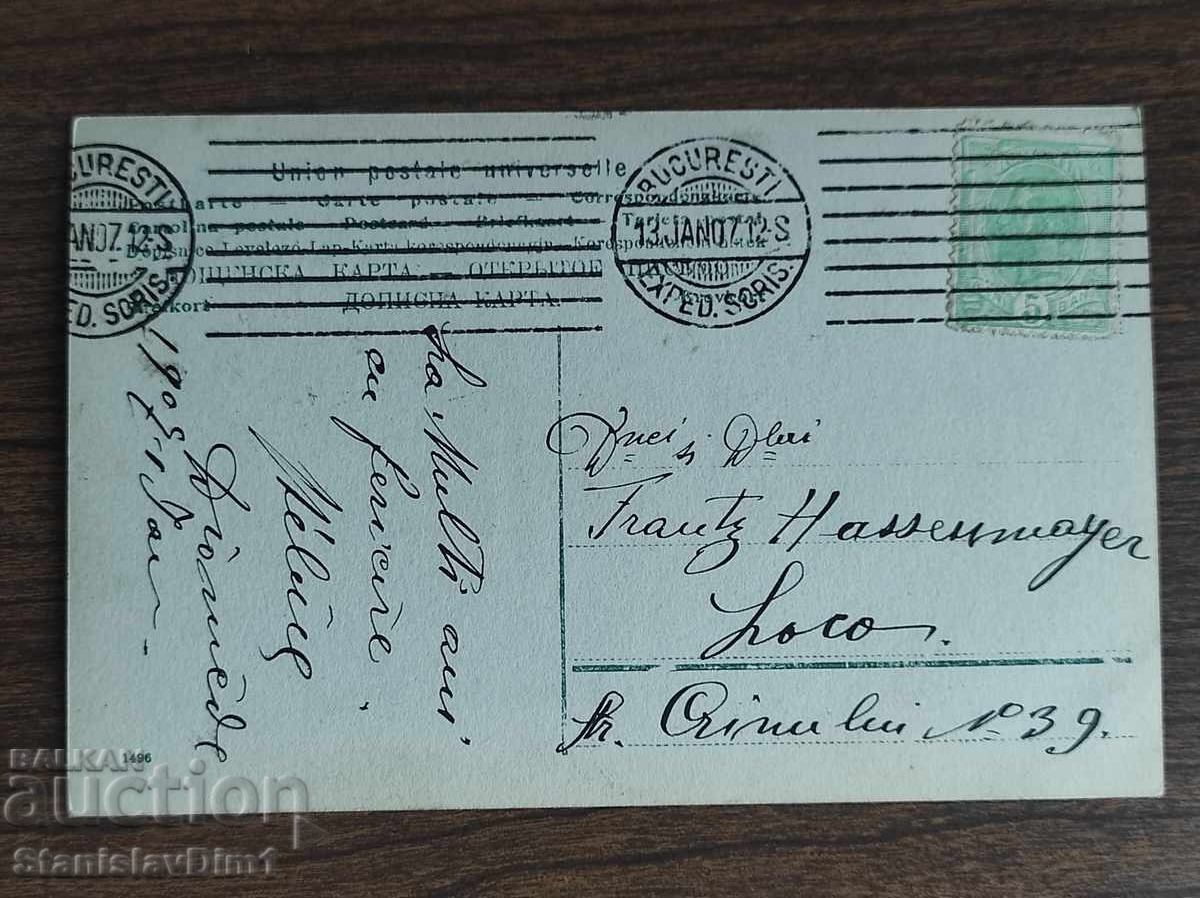 Union postale universelle
Postkarte — Carte postale — Correspondenzkarte
Cartolina postale - Postcard - Briefkaart - Tarjeta postal
Dopisnice-Levelező-Lap-Karta korespondencyjna-Korespondenční lístek
ДОПИСНА КАРТА.
BUCURESTI
13.IANO7.12-S
EXPED. SCRIS.
CURESTI
ANO7.12-S
ED. SCRIS.
5
La Multi ani,
cu fericire.
Méluie
Diomède
Dnei și Dlui
Frantz Hassenmayer
Loco.
Str. Crinului No 39.
1496
BALKAN
auction
StanislavDim1